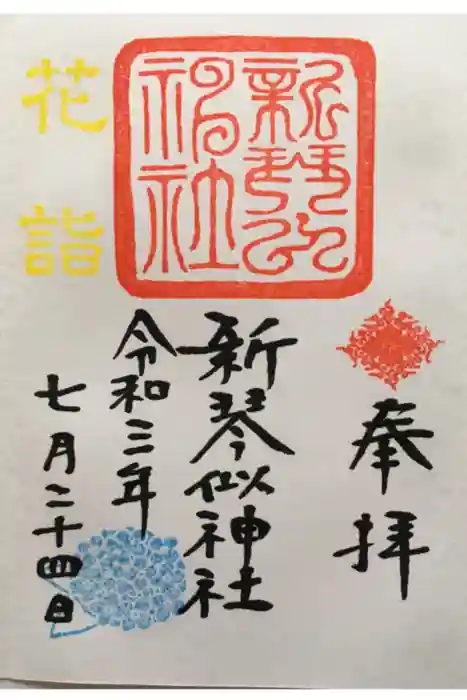 奉拝
新琴似神社
新琴似神社
令和三年
七月二十四日
花詣